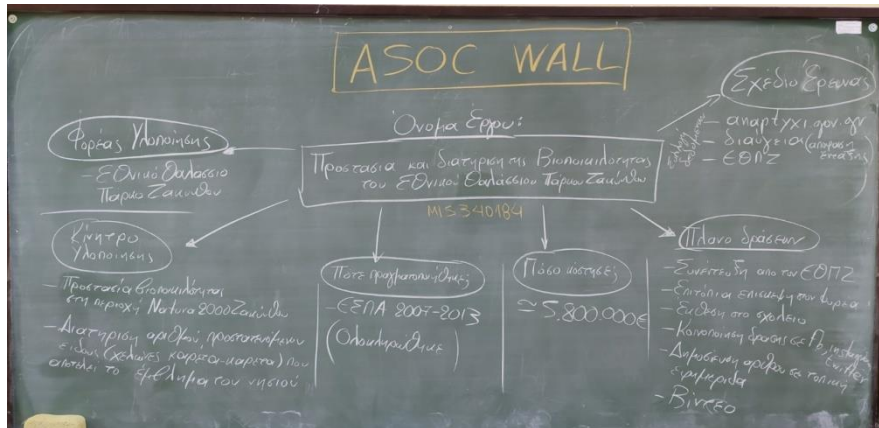 ASOC WALL
Σχέδιο Έρευνας
- anaptyxi.gov.gr
- διαύγεια (απόφαση
ένταξης)
- ΕΘΠΖ
Όνομα Έργου:
Προστασία και διατήριση της Βιοποικιλότητας
του Εθνικού Θαλάσσιου Πάρκου Ζακύνθου
MIS 340184
Φορέας Υλοποίησης
- Εθνικό Θαλάσσιο
Πάρκο Ζακύνθου
Κίνητρο
Υλοποίησης
- Προστασία βιοποικιλότητας
στη περιοχή Natura 2000 Ζακύνθου
- Διατήριση αριθμού προστατευόμενου
είδους (χελώνες καρέτα-καρέτα) που
αποτελεί το έμβλημα του νησιού
Πότε πραγματοποιήθηκε;
- ΕΣΠΑ 2007-2013
(Ολοκληρώθηκε)
Πόσο κόστησε;
≈ 5.800.000€
Πλάνο δράσεων
- Συνέντευξη από τον ΕΘΠΖ
- Επιτόπια επίσκεψη στον φορέα
- Έκθεση στο σχολείο
- Κοινοποίηση δράσης σε fb, instagram,
twitter
- Δημοσίευση άρθρου σε τοπική
εφημερίδα
- Βίντεο